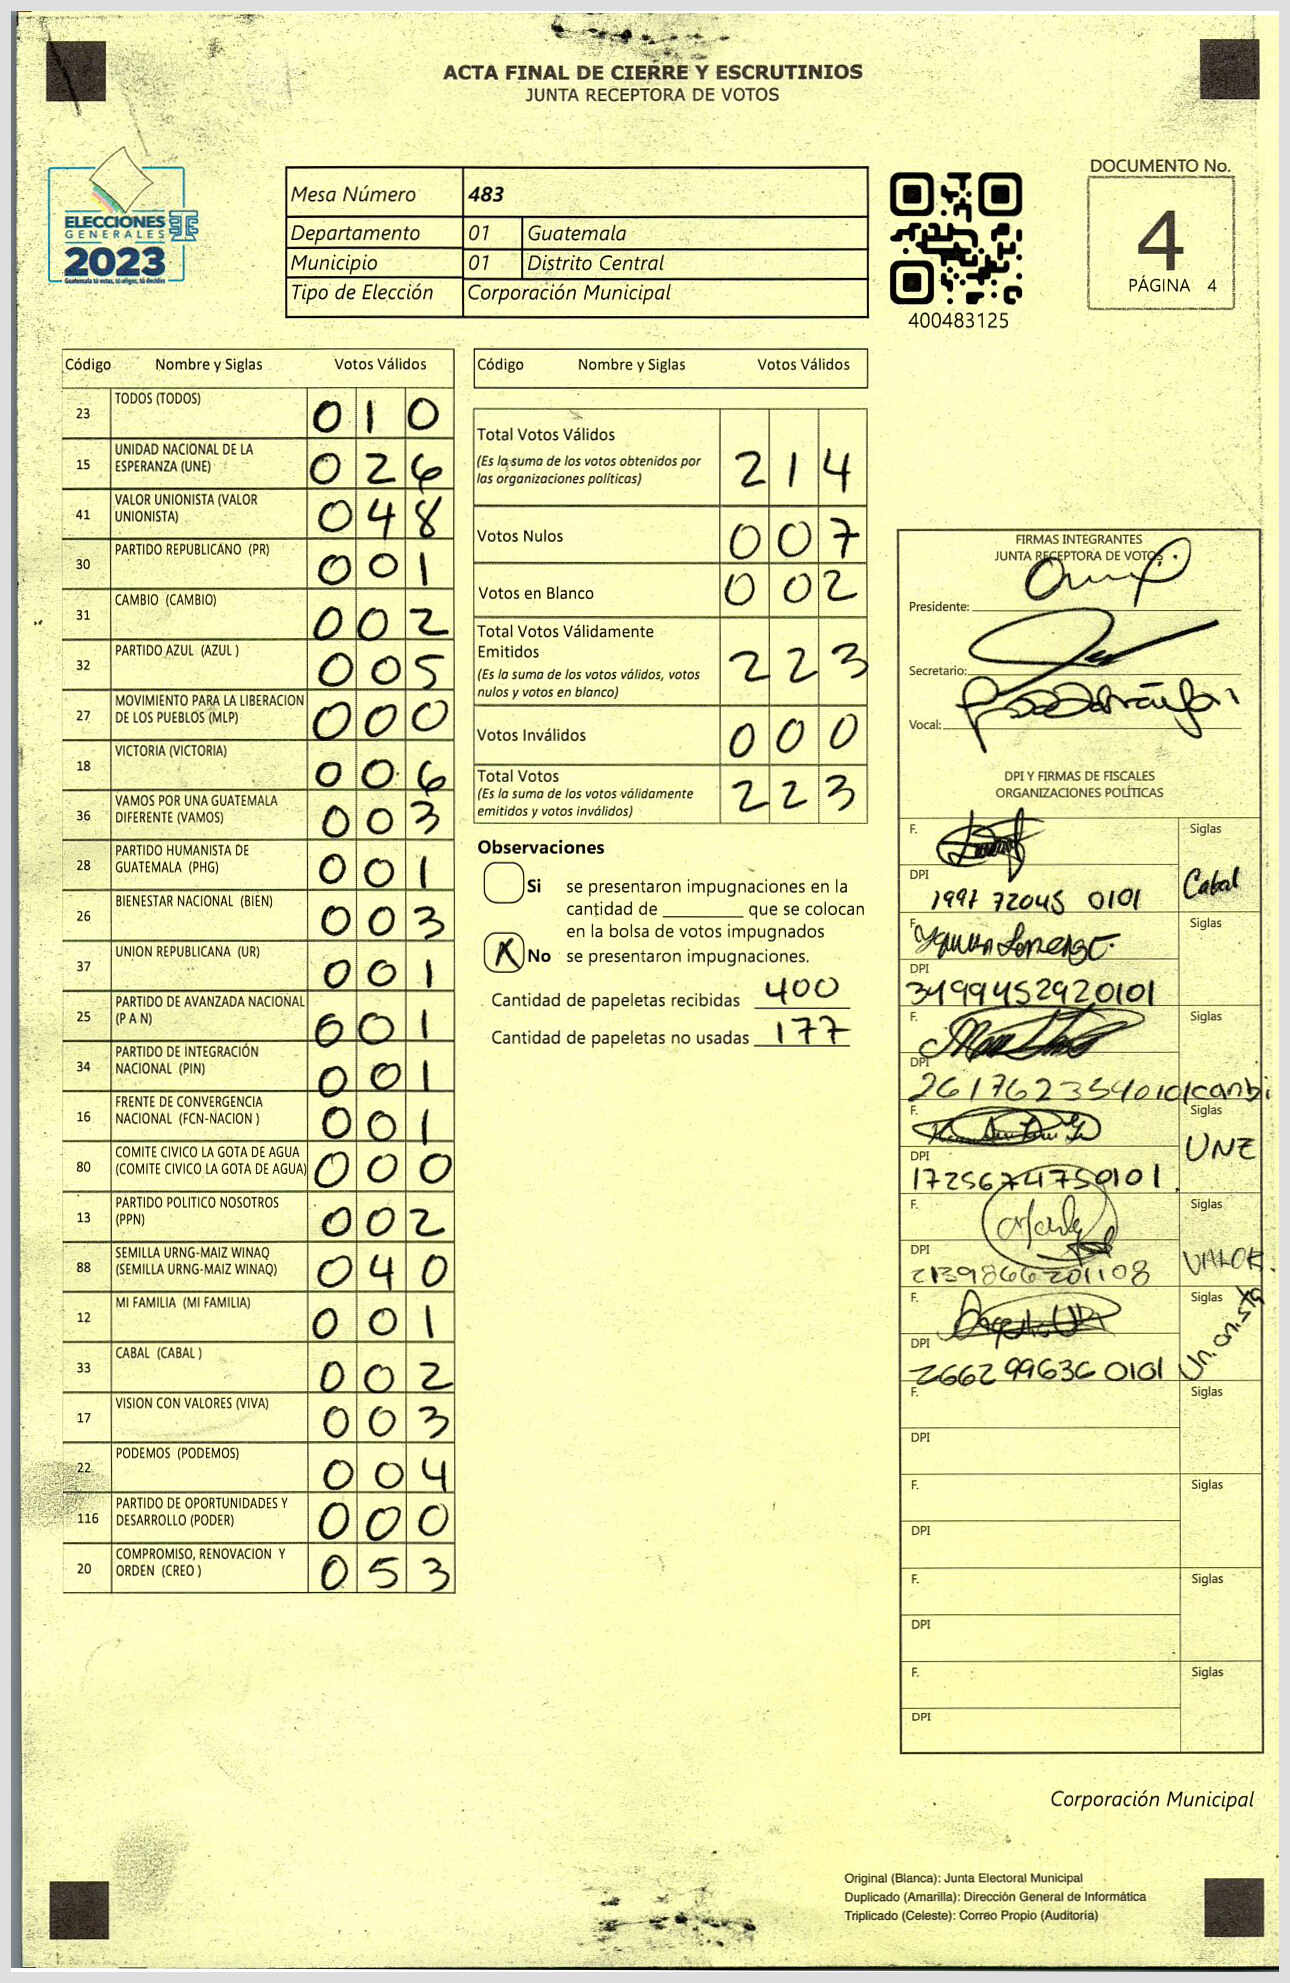 ACTA FINAL DE CIERRE Y ESCRUTINIOS
JUNTA RECEPTORA DE VOTOS
ELECCIONES
GENERALES
2023
Guatemala tú votas, tú eliges, tú decides
Mesa Número 483
Departamento 01 Guatemala
Municipio 01 Distrito Central
Tipo de Elección Corporación Municipal
400483125
DOCUMENTO No.
4
PÁGINA 4
Código Nombre y Siglas Votos Válidos
23 TODOS (TODOS) 010
15 UNIDAD NACIONAL DE LA ESPERANZA (UNE) 026
41 VALOR UNIONISTA (VALOR UNIONISTA) 048
30 PARTIDO REPUBLICANO (PR) 001
31 CAMBIO (CAMBIO) 002
32 PARTIDO AZUL (AZUL ) 005
27 MOVIMIENTO PARA LA LIBERACION DE LOS PUEBLOS (MLP) 000
18 VICTORIA (VICTORIA) 006
36 VAMOS POR UNA GUATEMALA DIFERENTE (VAMOS) 003
28 PARTIDO HUMANISTA DE GUATEMALA (PHG) 001
26 BIENESTAR NACIONAL (BIEN) 003
37 UNION REPUBLICANA (UR) 001
25 PARTIDO DE AVANZADA NACIONAL (P A N) 001
34 PARTIDO DE INTEGRACIÓN NACIONAL (PIN) 001
16 FRENTE DE CONVERGENCIA NACIONAL (FCN-NACION ) 001
80 COMITE CIVICO LA GOTA DE AGUA (COMITE CIVICO LA GOTA DE AGUA) 000
13 PARTIDO POLITICO NOSOTROS (PPN) 002
88 SEMILLA URNG-MAIZ WINAQ (SEMILLA URNG-MAIZ WINAQ) 040
12 MI FAMILIA (MI FAMILIA) 001
33 CABAL (CABAL ) 002
17 VISION CON VALORES (VIVA) 003
22 PODEMOS (PODEMOS) 004
116 PARTIDO DE OPORTUNIDADES Y DESARROLLO (PODER) 000
20 COMPROMISO, RENOVACION Y ORDEN (CREO ) 053
Código Nombre y Siglas Votos Válidos
Total Votos Válidos 214
(Es la suma de los votos obtenidos por
las organizaciones políticas)
Votos Nulos 007
Votos en Blanco 002
Total Votos Válidamente
Emitidos 223
(Es la suma de los votos válidos, votos
nulos y votos en blanco)
Votos Inválidos 000
Total Votos 223
(Es la suma de los votos válidamente
emitidos y votos inválidos)
Observaciones
Si se presentaron impugnaciones en la
cantidad de ________ que se colocan
en la bolsa de votos impugnados
X No se presentaron impugnaciones.
Cantidad de papeletas recibidas 400
Cantidad de papeletas no usadas 177
FIRMAS INTEGRANTES
JUNTA RECEPTORA DE VOTOS
Presidente:
Secretario:
Vocal:
DPI Y FIRMAS DE FISCALES
ORGANIZACIONES POLÍTICAS
F. Siglas
DPI 1997 72045 0101 Cabal
F. Siglas
DPI 3499452920101
F. Siglas
DPI 2617623540101 cambi
F. Siglas
DPI 1725674750101. UNE
F. Siglas
DPI 2139866201108 VALOR.
F. Siglas
DPI 2662996360101 Unionista
F. Siglas
DPI
F. Siglas
DPI
F. Siglas
DPI
F. Siglas
DPI
Corporación Municipal
Original (Blanca): Junta Electoral Municipal
Duplicado (Amarilla): Dirección General de Informática
Triplicado (Celeste): Correo Propio (Auditoría)